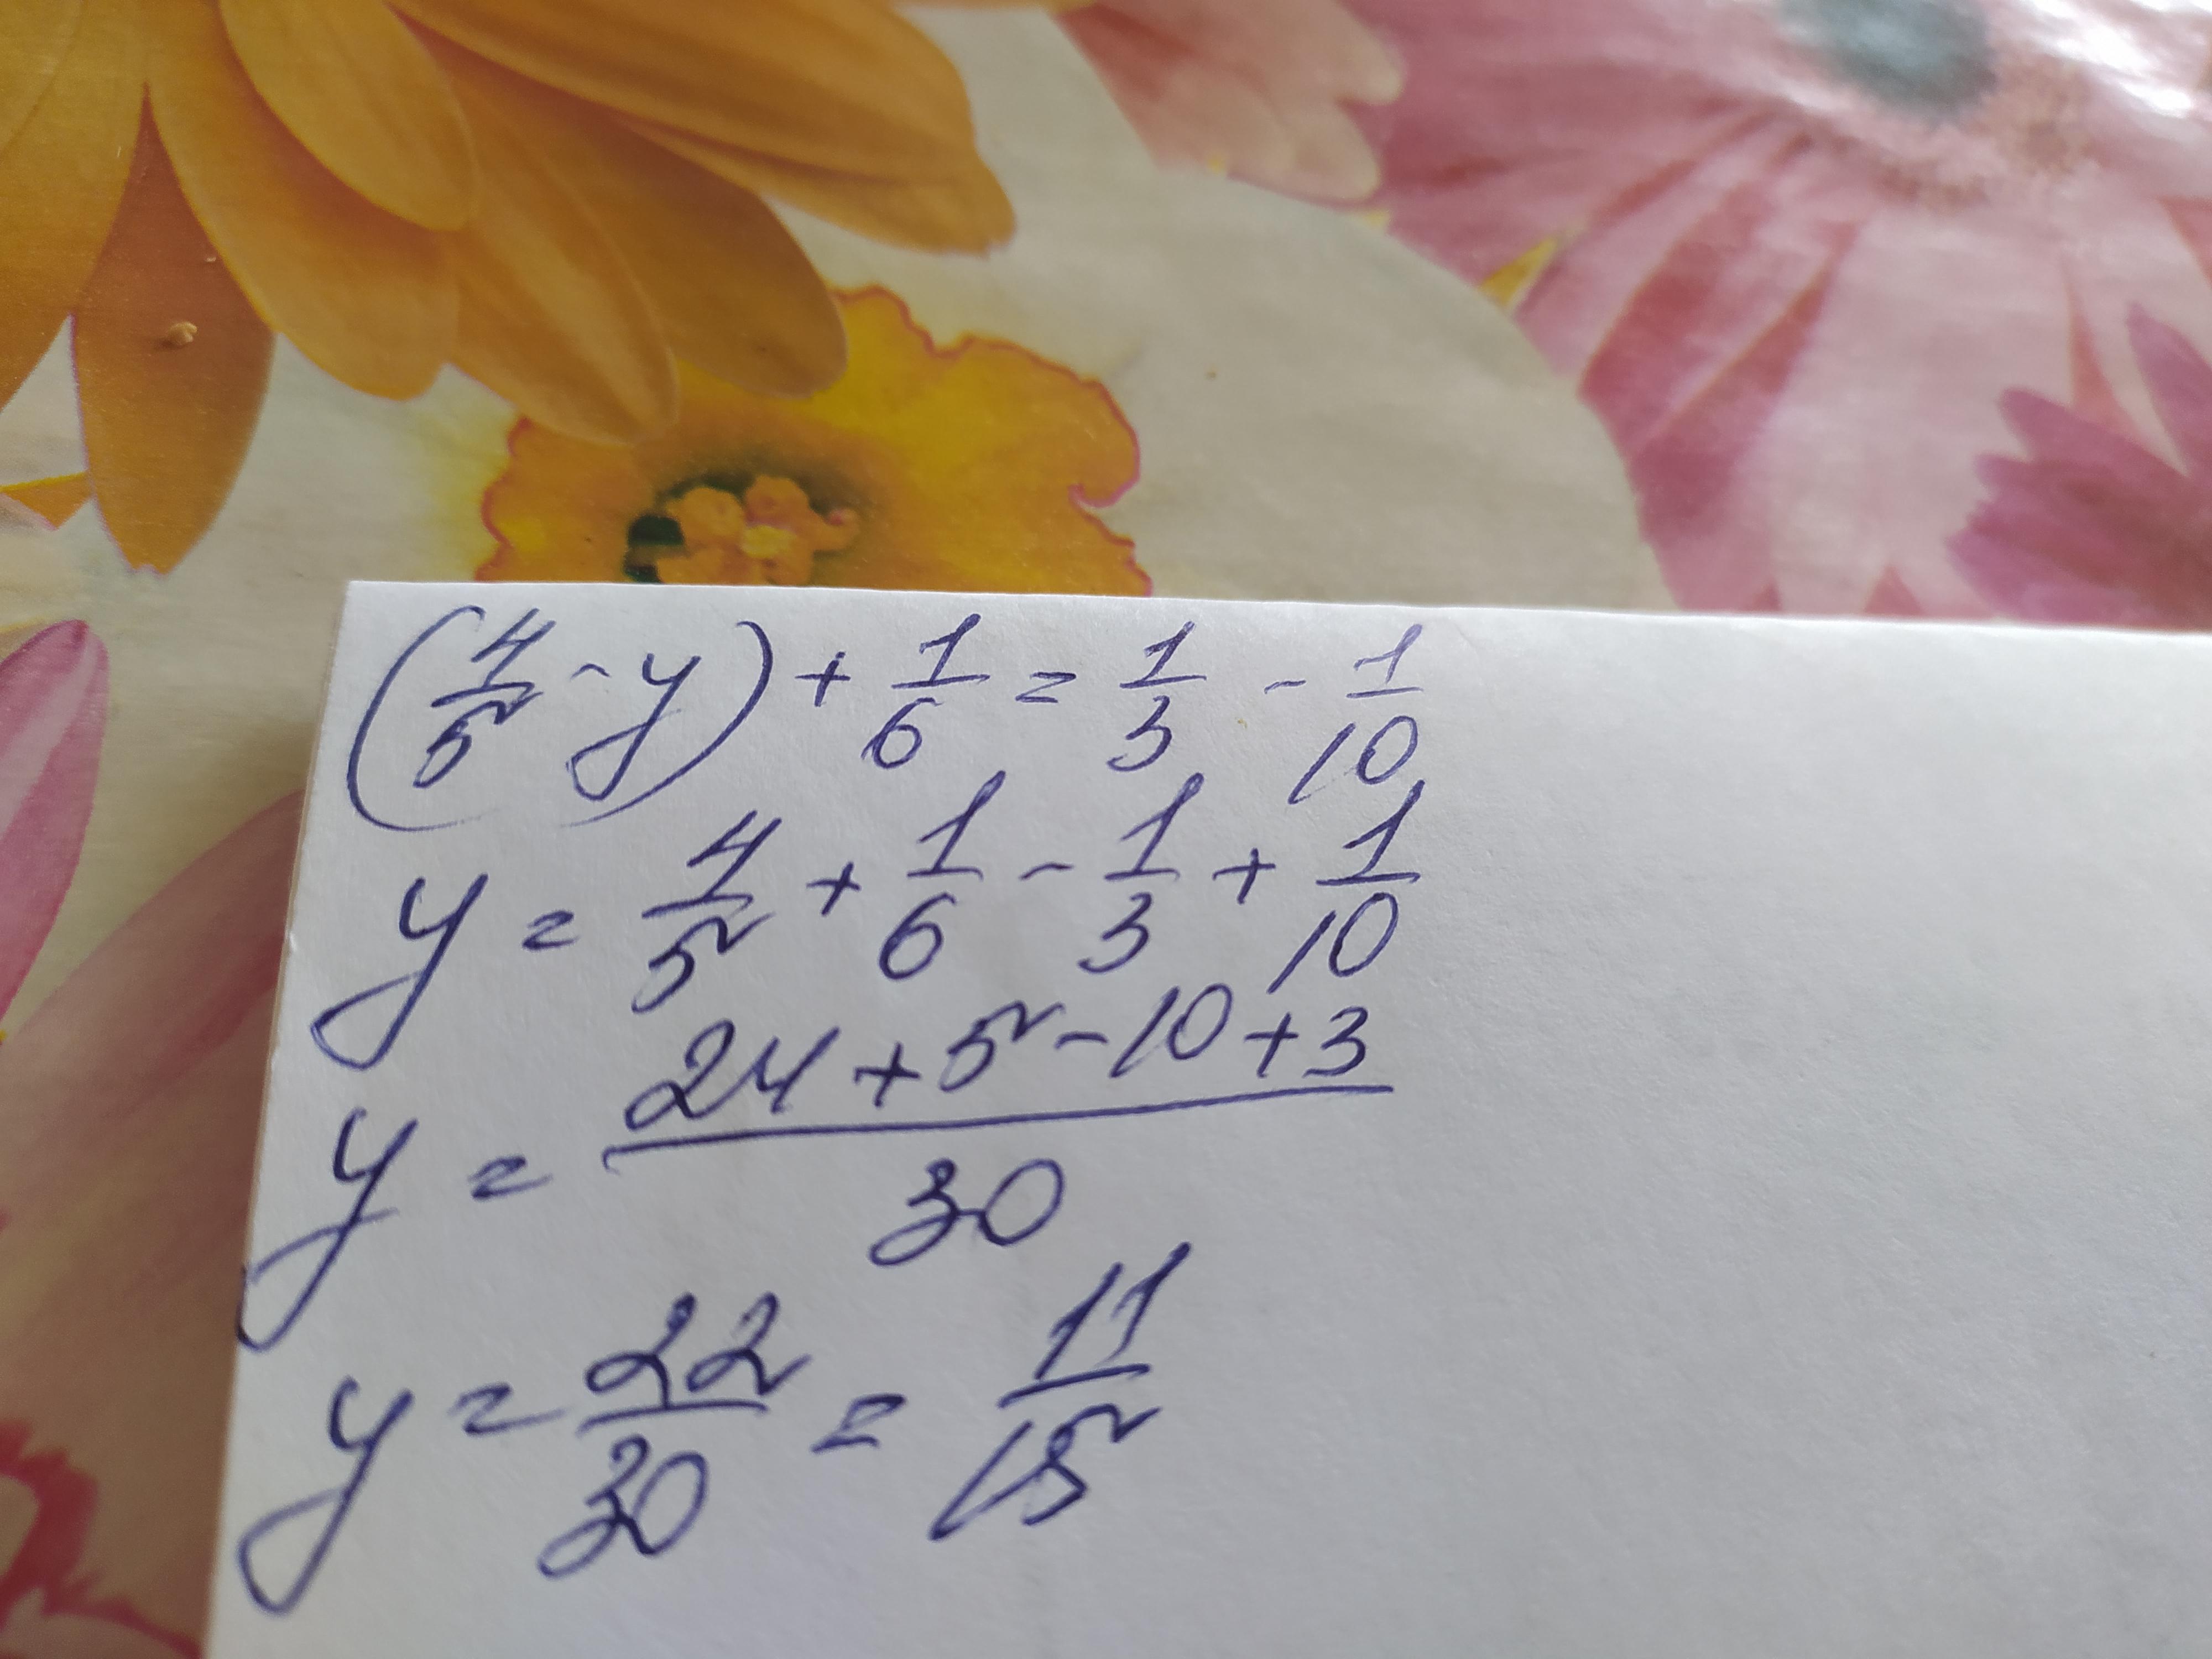 (4/5 - y) + 1/6 = 1/3 - 1/10
y = 4/5 + 1/6 - 1/3 + 1/10
y = (24 + 5 - 10 + 3)/30
y = 22/30 = 11/15